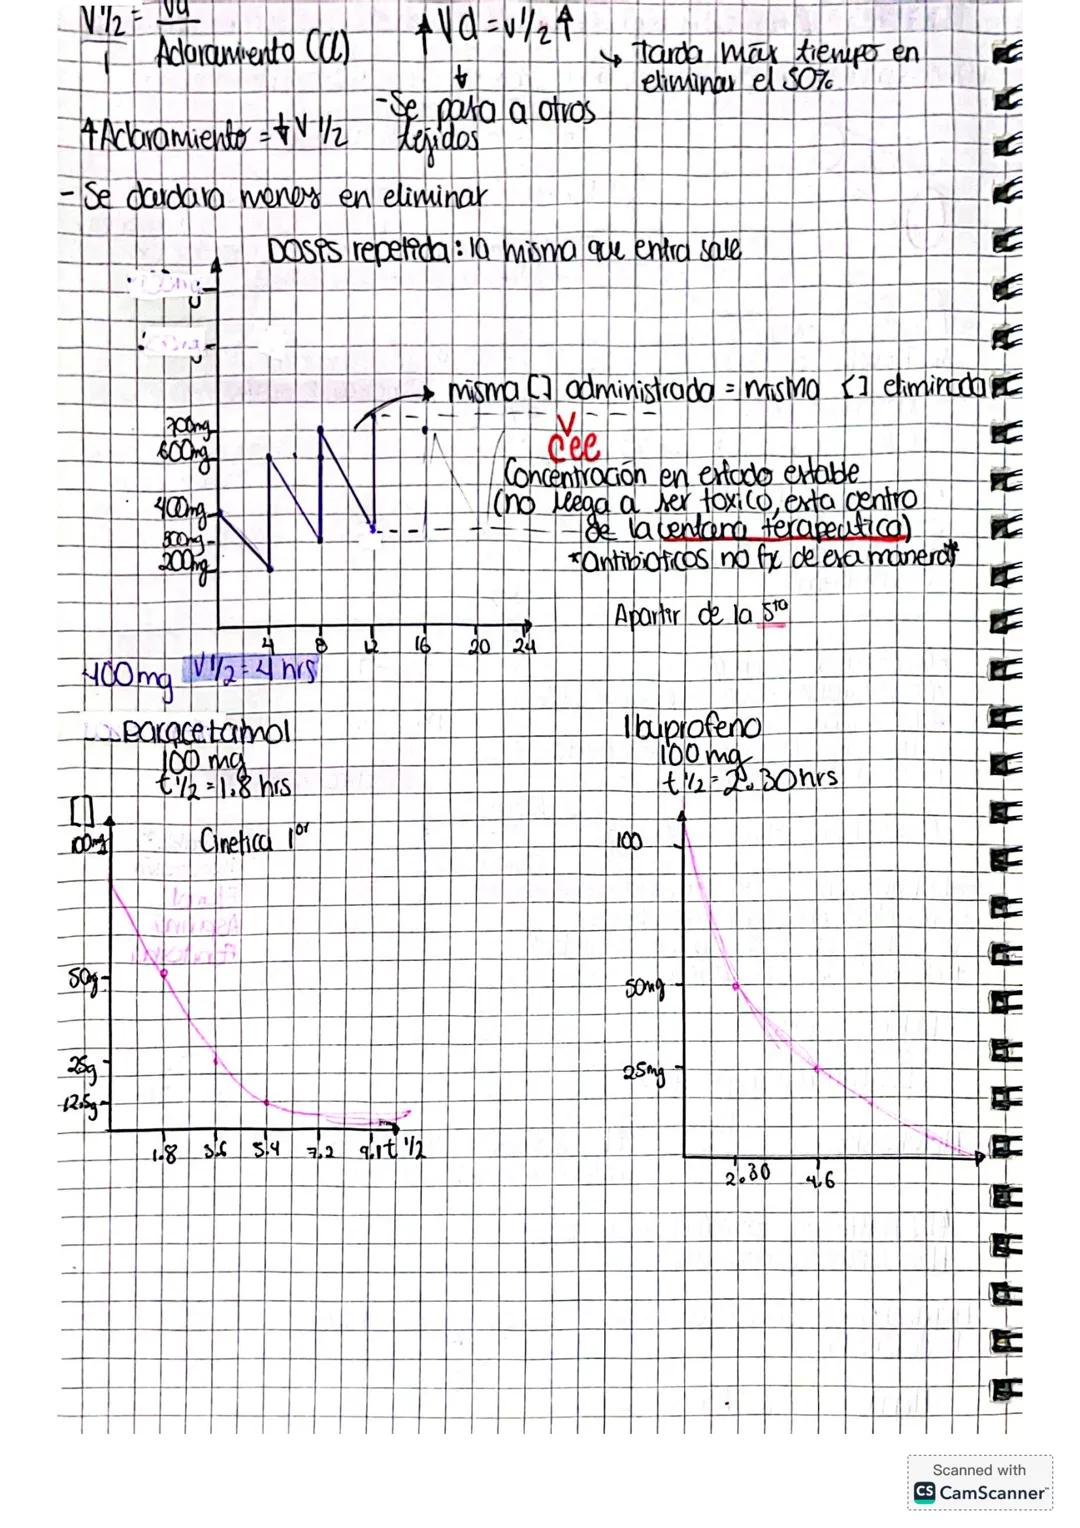 V½ = Vd
1 Adaramiento (Cl)
↑Vd = v½ ↑
↳ Tarda max tiempo en
eliminar el 50%
- Se pasa a otros
tejidos
↑ Adaramiento = ↓ V ½
- Se dardara menos en eliminar
Dosis repetida: la misma que entra sale
misma [] administrada = misma [] eliminada
700mg
600mg
400mg
300mg
200mg
Cee
Concentración en estado estable
(no llega a ser toxico, esta dentro
de la ventana terapeutica)
*Antibioticos no fx de esa manera*
Apartir de la 5ta
4 8 12 16 20 24
400mg V½ = 4 hrs
paracetamol
100 mg
t½ = 1.8 hrs
Ibuprofeno
100 mg
t½ = 2.30 hrs
[]
100mg
Cinetica 1or
50g
25g
12.5g
1.8 3.6 5.4 7.2 9.1 t ½
100
50mg
25mg
2.30 4.6
Scanned with
CS CamScanner